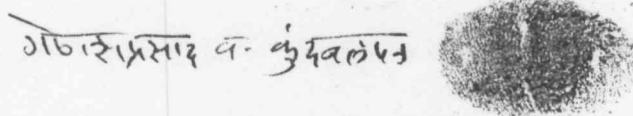 गणेशप्रसाद व. कुंदबलंपन